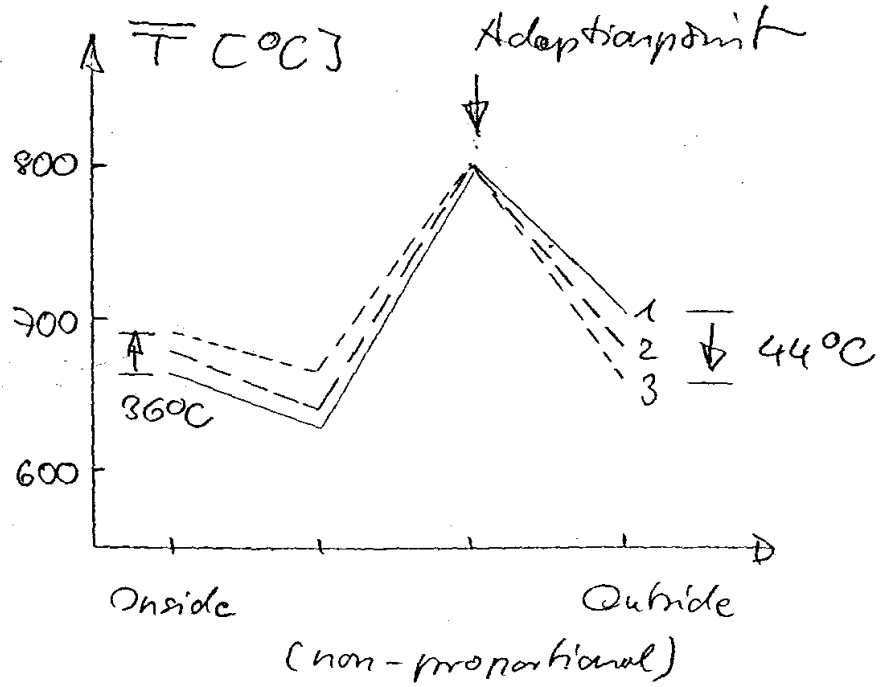 T [°C]
Adaptionpoint
800
700
600
36°C
1
2
3
44°C
Onside
Outside
(non-proportional)